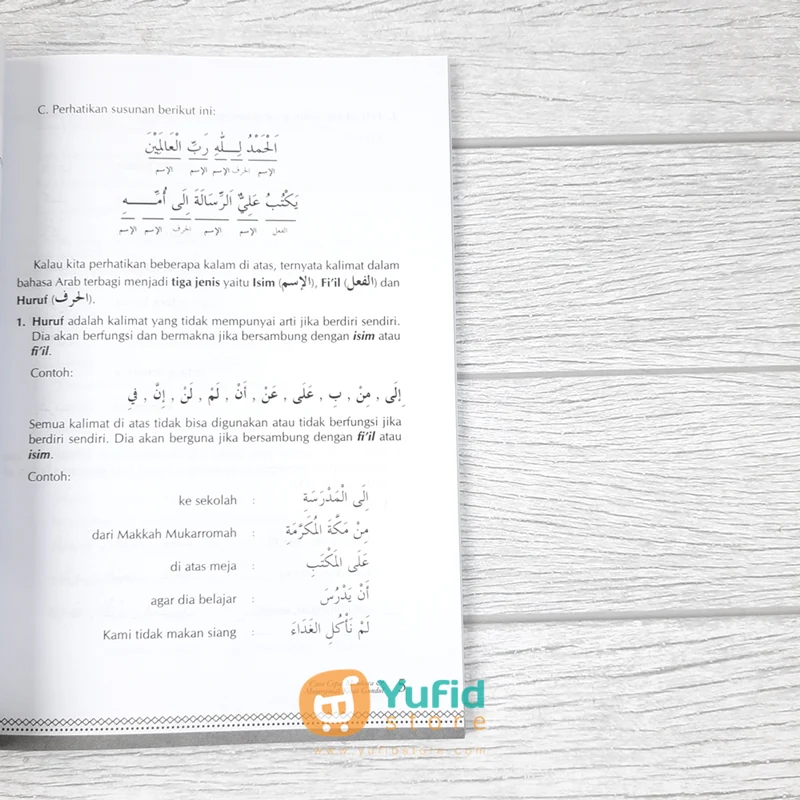 C. Perhatikan susunan berikut ini:
اَلْحَمْدُ لِـــلّٰهِ رَبِّ الْعَالَمِيْنَ
الإسم الحرف الإسم الإسم الإسم
يَكْتُبُ عَلِيٌّ اَلرِّسَالَةَ اِلَى أُمِّـــــهِ
الفعل الإسم الإسم الحرف الإسم الإسم
Kalau kita perhatikan beberapa kalam di atas, ternyata kalimat dalam
bahasa Arab terbagi menjadi tiga jenis yaitu Isim (الإسم), Fi'il (الفعل) dan
Huruf (الحرف).
1. Huruf adalah kalimat yang tidak mempunyai arti jika berdiri sendiri.
Dia akan berfungsi dan bermakna jika bersambung dengan isim atau
fi'il.
Contoh:
إِلَى , مِنْ , بِ , عَلَى , عَنْ , أَنْ , لَمْ , لَنْ , إِنْ , فِي
Semua kalimat di atas tidak bisa digunakan atau tidak berfungsi jika
berdiri sendiri. Dia akan berguna jika bersambung dengan fi'il atau
isim.
Contoh:
ke sekolah : اِلَى الْمَدْرَسَةِ
dari Makkah Mukarromah : مِنْ مَكَّةَ المُكَرَّمَةِ
di atas meja : عَلَى المَكْتَبِ
agar dia belajar : أَنْ يَدْرُسَ
Kami tidak makan siang : لَمْ نَأْكُلِ الغَدَاءَ
Yufid
store
www.yufidstore.com